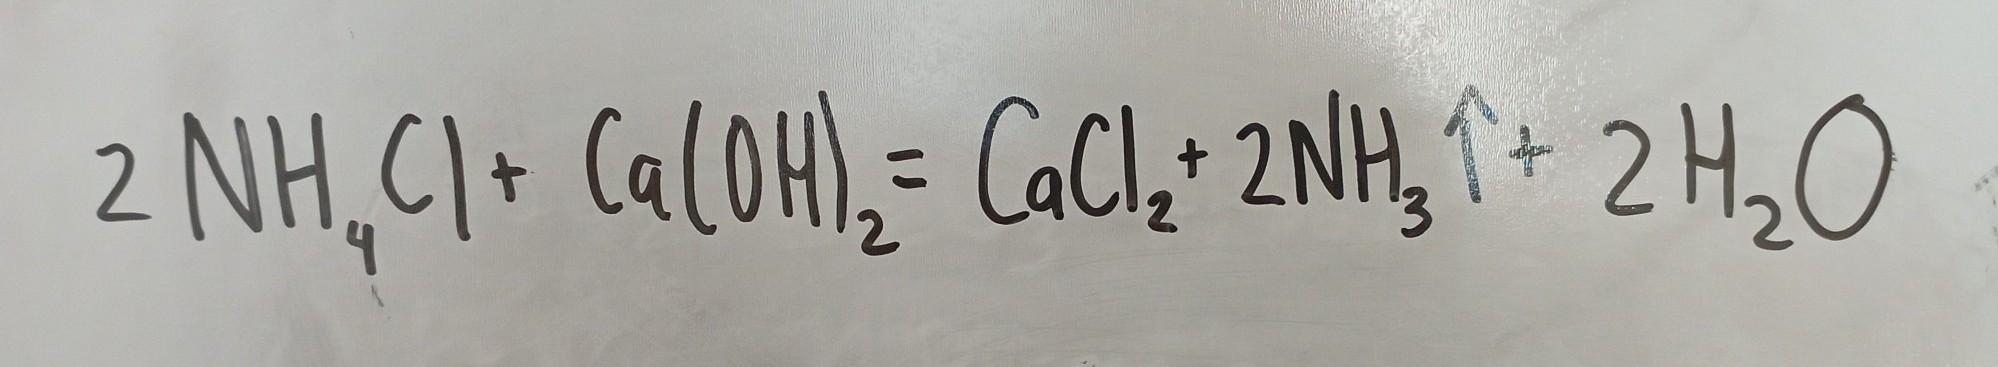 2NH₄Cl + Ca(OH)₂ = CaCl₂ + 2NH₃↑ + 2H₂O